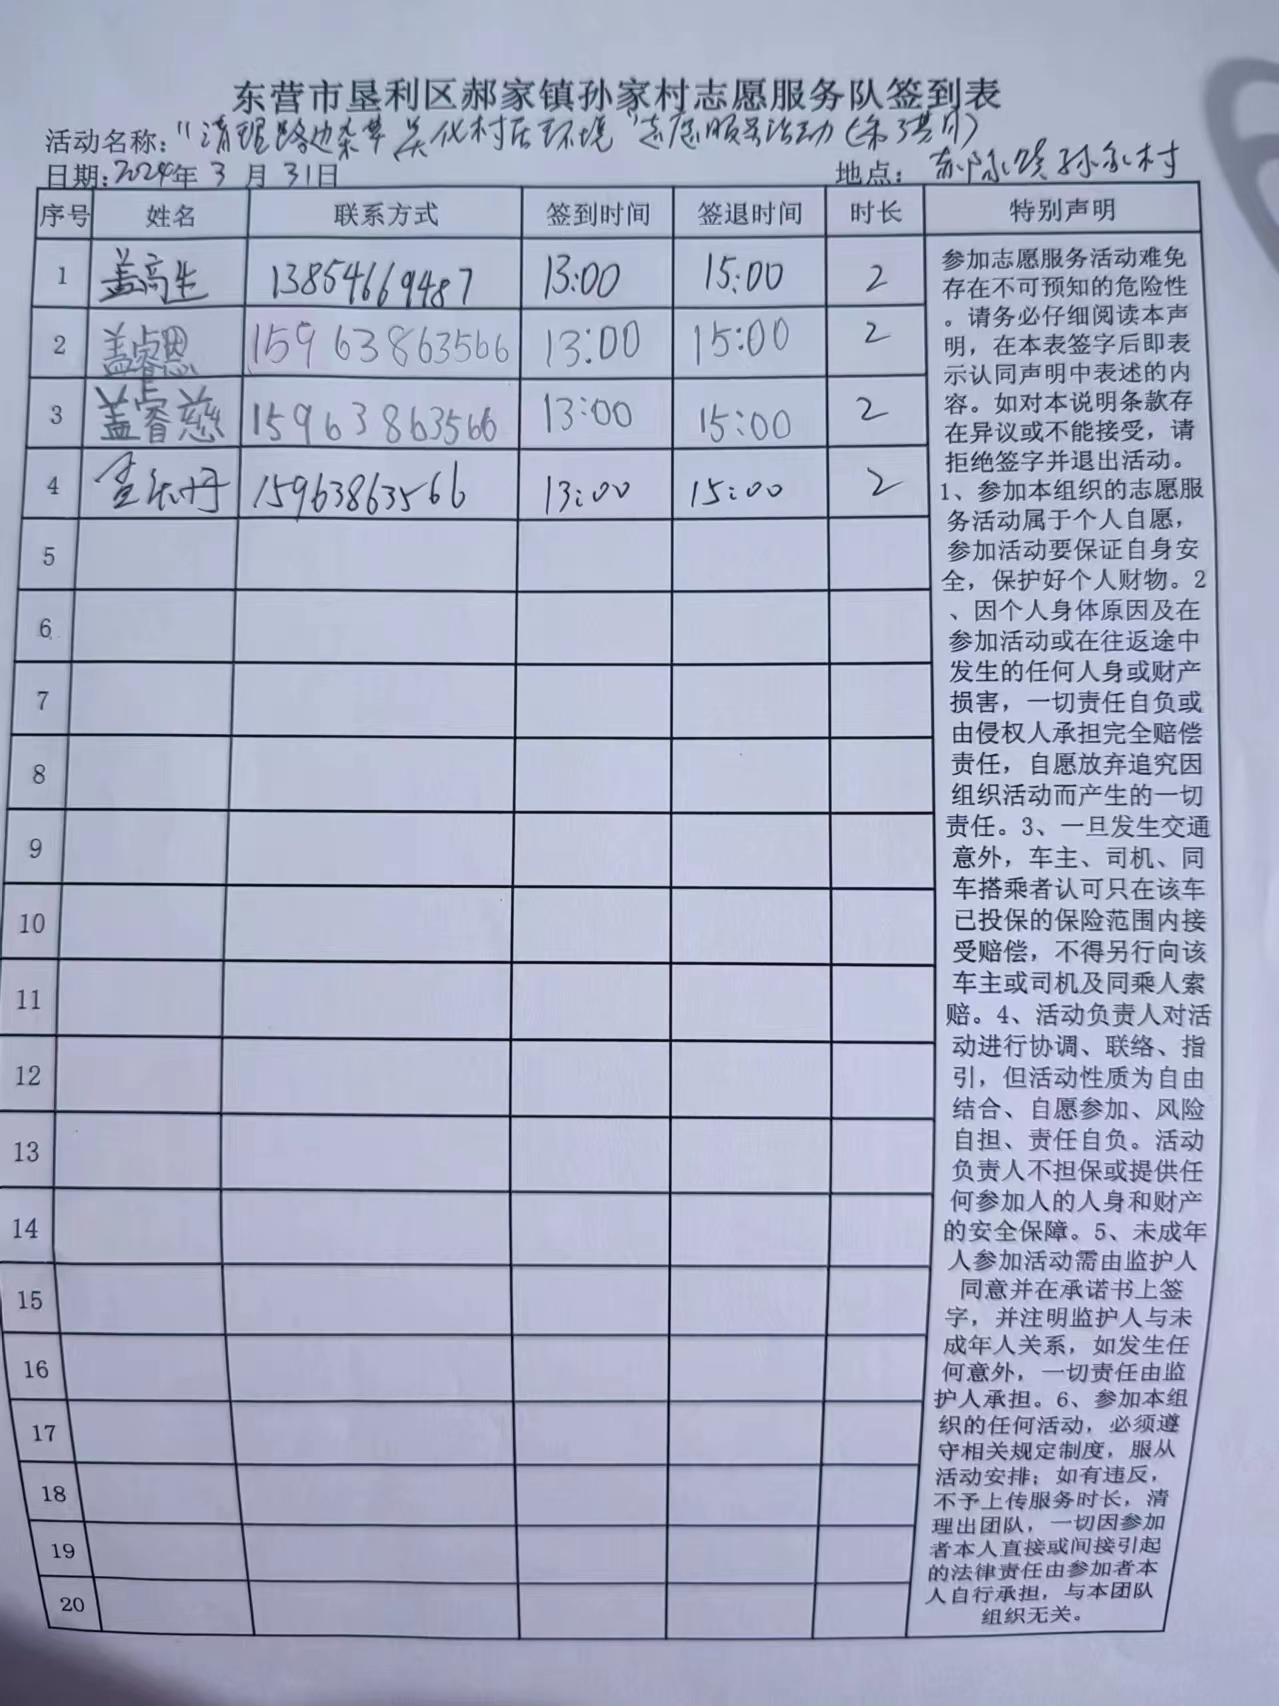 东营市垦利区郝家镇孙家村志愿服务队签到表
活动名称：“清理路边杂草 美化村居环境”志愿服务活动
日期：2024年 3 月 31日 地点： 孙家村
序号 姓名 联系方式 签到时间 签退时间 时长 特别声明
1 盖高生 13854669487 13:00 15:00 2
2 盖睿恩 15963863566 13:00 15:00 2
3 盖睿慈 15963863566 13:00 15:00 2
4 15963863566 13:00 15:00 2
5
6
7
8
9
10
11
12
13
14
15
16
17
18
19
20
参加志愿服务活动难免
存在不可预知的危险性
。请务必仔细阅读本声
明，在本表签字后即表
示认同声明中表述的内
容。如对本说明条款存
在异议或不能接受，请
拒绝签字并退出活动。
1、参加本组织的志愿服
务活动属于个人自愿，
参加活动要保证自身安
全，保护好个人财物。2
、因个人身体原因及在
参加活动或在往返途中
发生的任何人身或财产
损害，一切责任自负或
由侵权人承担完全赔偿
责任，自愿放弃追究因
组织活动而产生的一切
责任。3、一旦发生交通
意外，车主、司机、同
车搭乘者认可只在该车
已投保的保险范围内接
受赔偿，不得另行向该
车主或司机及同乘人索
赔。4、活动负责人对活
动进行协调、联络、指
引，但活动性质为自由
结合、自愿参加、风险
自担、责任自负。活动
负责人不担保或提供任
何参加人的人身和财产
的安全保障。5、未成年
人参加活动需由监护人
同意并在承诺书上签
字，并注明监护人与未
成年人关系，如发生任
何意外，一切责任由监
护人承担。6、参加本组
织的任何活动，必须遵
守相关规定制度，服从
活动安排；如有违反，
不予上传服务时长，清
理出团队，一切因参加
者本人直接或间接引起
的法律责任由参加者本
人自行承担，与本团队
组织无关。